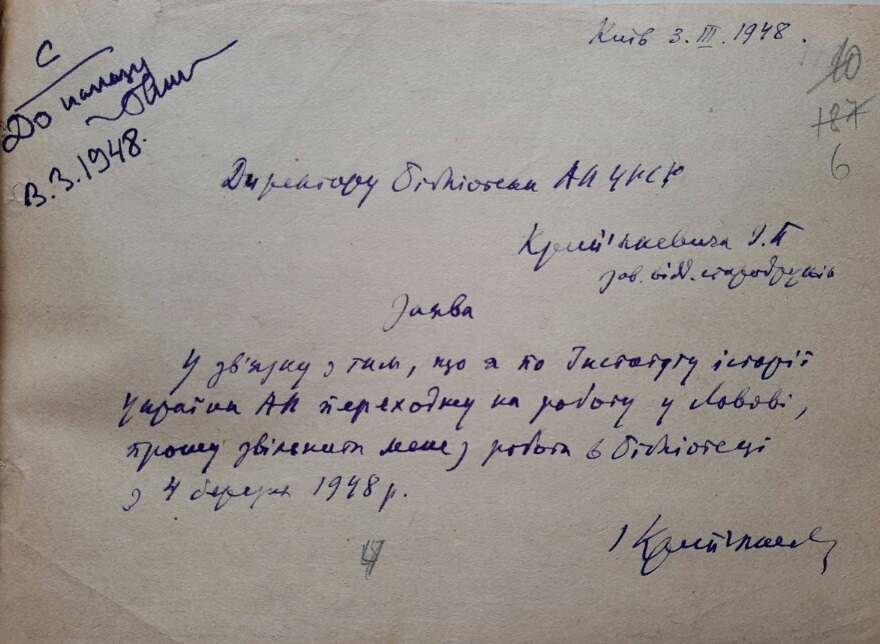 Київ 3.III.1948.
До наказу
3.3.1948.
10
187
6
Директору Бібліотеки АН УРСР
Крип'якевича І.П
зав. відд. стародруків
Заява
У зв'язку з тим, що я по Інституту історії
України АН переходжу на роботу у Львові,
прошу звільнити мене з роботи в бібліотеці
з 4 березня 1948 р.
І Крип'якевич